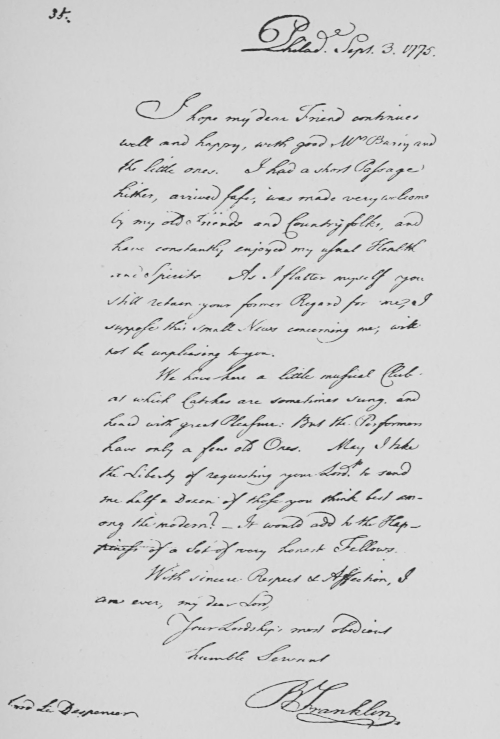 35.
Philad.ª Sept. 3. 1775.
I hope my dear Friend continues
well and happy, with good Mrs Barry and
the little ones. I had a short Passage
hither, arrived safe, was made very welcome
by my old Friends and Countryfolks, and
have constantly enjoyed my usual Health
and Spirits. As I flatter myself you
still retain your former Regard for me, I
suppose this small News concerning me, will
not be unpleasing to you.
We have here a little musical Club
at which Catches are sometimes sung, and
heard with great Pleasure: But the Performers
have only a few old Ones. May I take
the Liberty of requesting your Lordp. to send
me half a Dozen of those you think best am-
ong the modern? — It would add to the Hap-
piness of a Set of very honest Fellows.
With sincere Respect & Affection, I
am ever, my dear Lord,
Your Lordship's most obedient
humble Servant
B Franklin
Lord Le Despencer